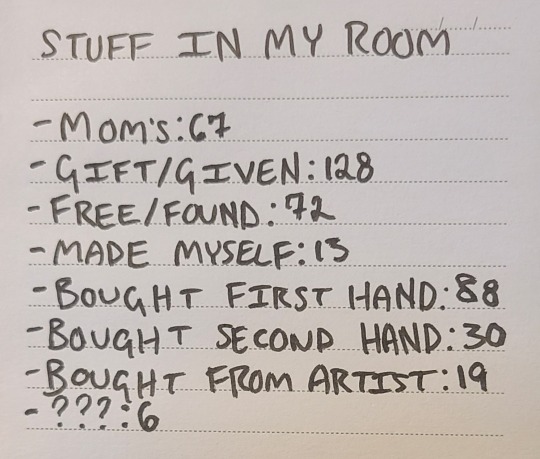 STUFF IN MY ROOM
- Mom's: 67
- GIFT/GIVEN: 128
- FREE/FOUND: 72
- MADE MYSELF: 13
- BOUGHT FIRST HAND: 88
- BOUGHT SECOND HAND: 30
- BOUGHT FROM ARTIST: 19
- ???: 6